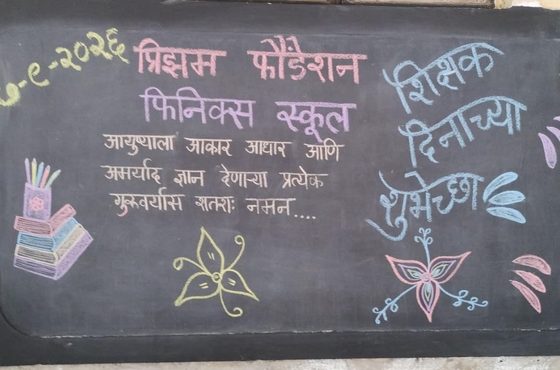 -९-२०२६
प्रिझम फौंडेशन
फिनिक्स स्कूल
आयुष्याला आकार आधार आणि
अमर्याद ज्ञान देणाऱ्या प्रत्येक
गुरूवर्यास शतशः नमन....
शिक्षक
दिनाच्या
शुभेच्छा